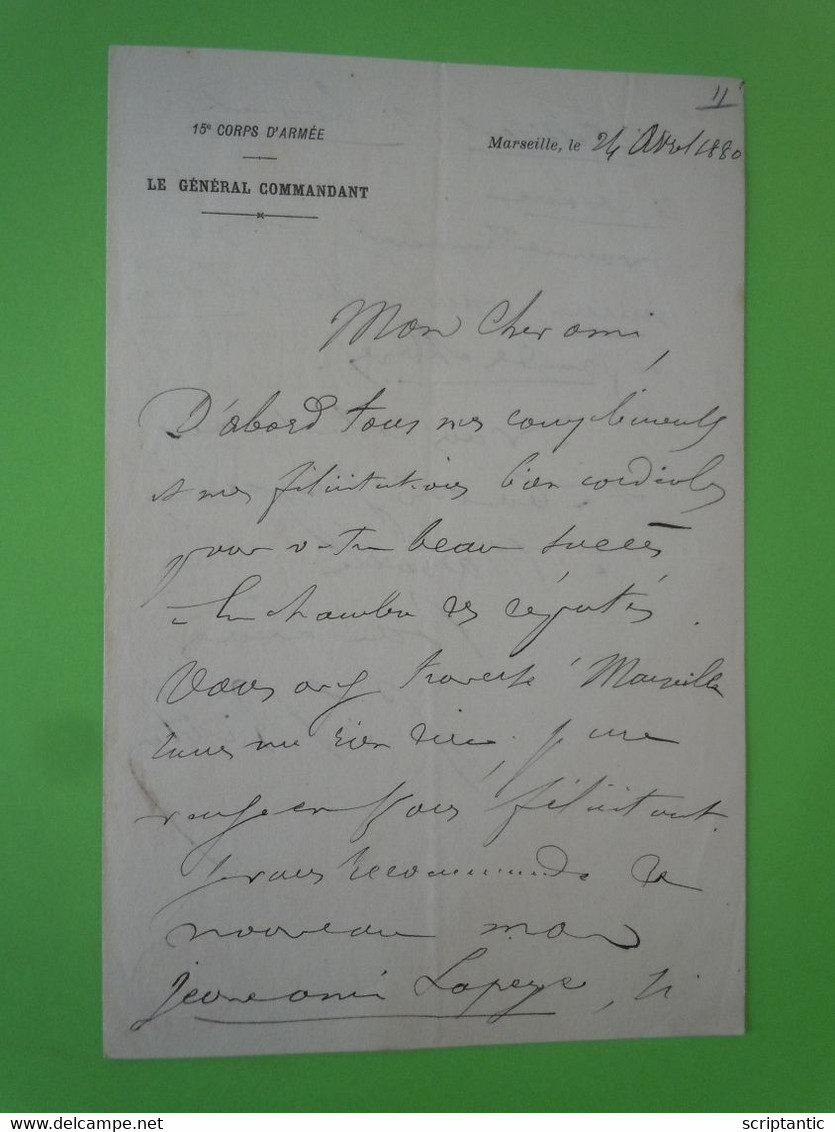 11
15e CORPS D'ARMÉE
Marseille, le 24 Avril 1880
LE GÉNÉRAL COMMANDANT
Mon cher ami,
D'abord tous mes compliments
et mes félicitations bien cordiales
pour votre beau succès
à la chambre des députés.
Vous avez traversé Marseille
sans me rien dire, je me
venge en vous félicitant.
Je vous recommande de
nouveau mon
jeune ami Lapeyre, si
scriptantic